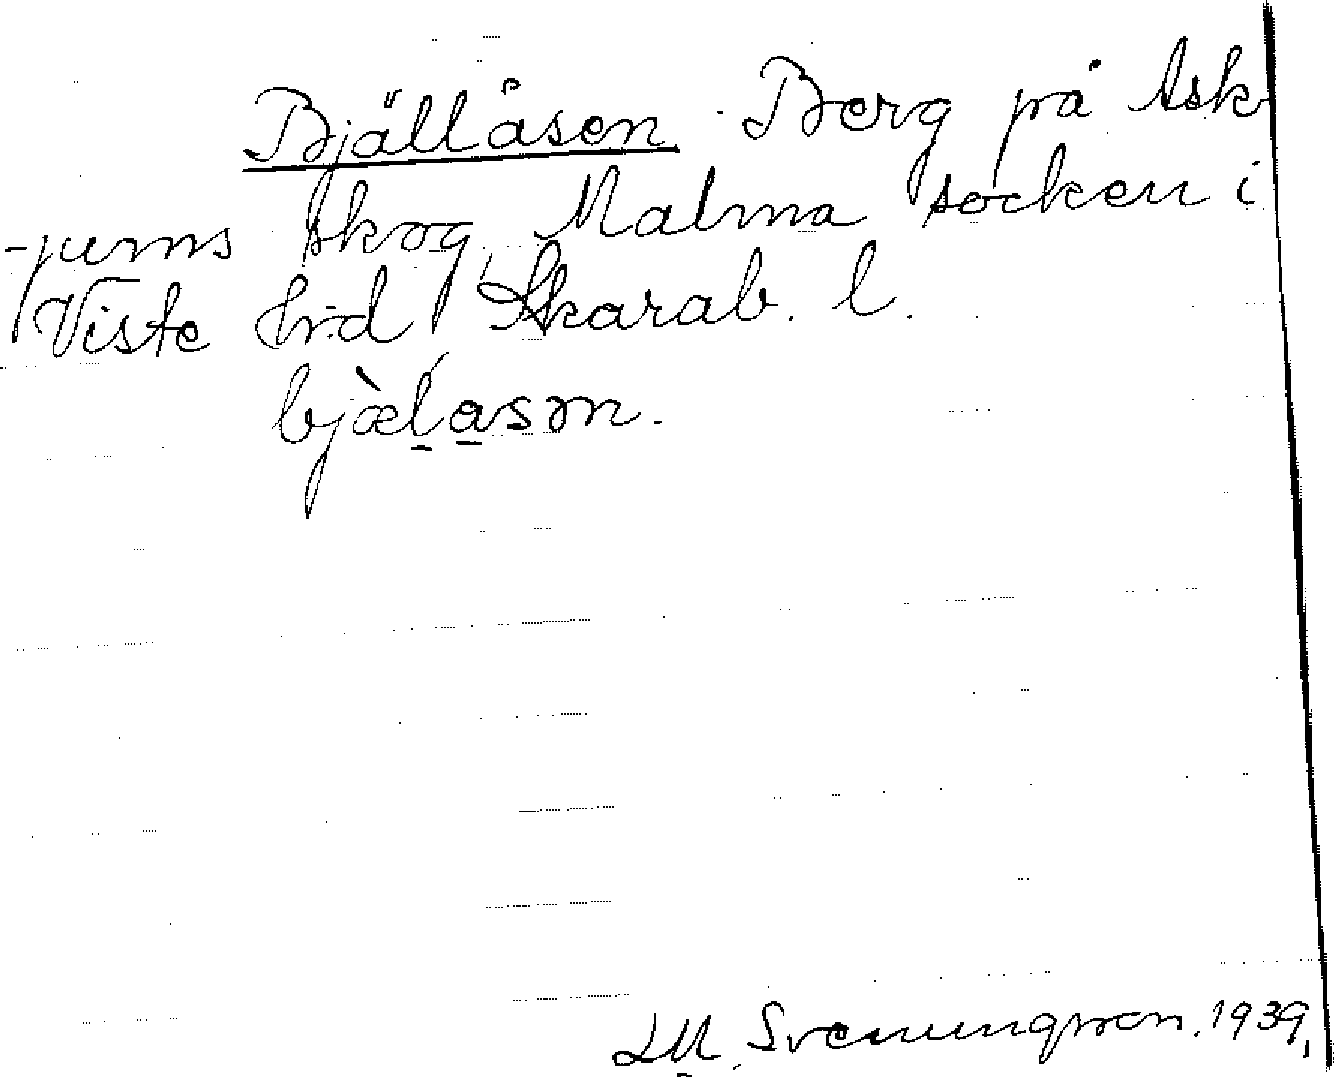 Bjällåsen. Berg på Ask
-jums skog, Malma socken i
Viste hrd Skarab. l.
bjæ̀l̠a̠sən.
L M. Svenungsson. 1939.